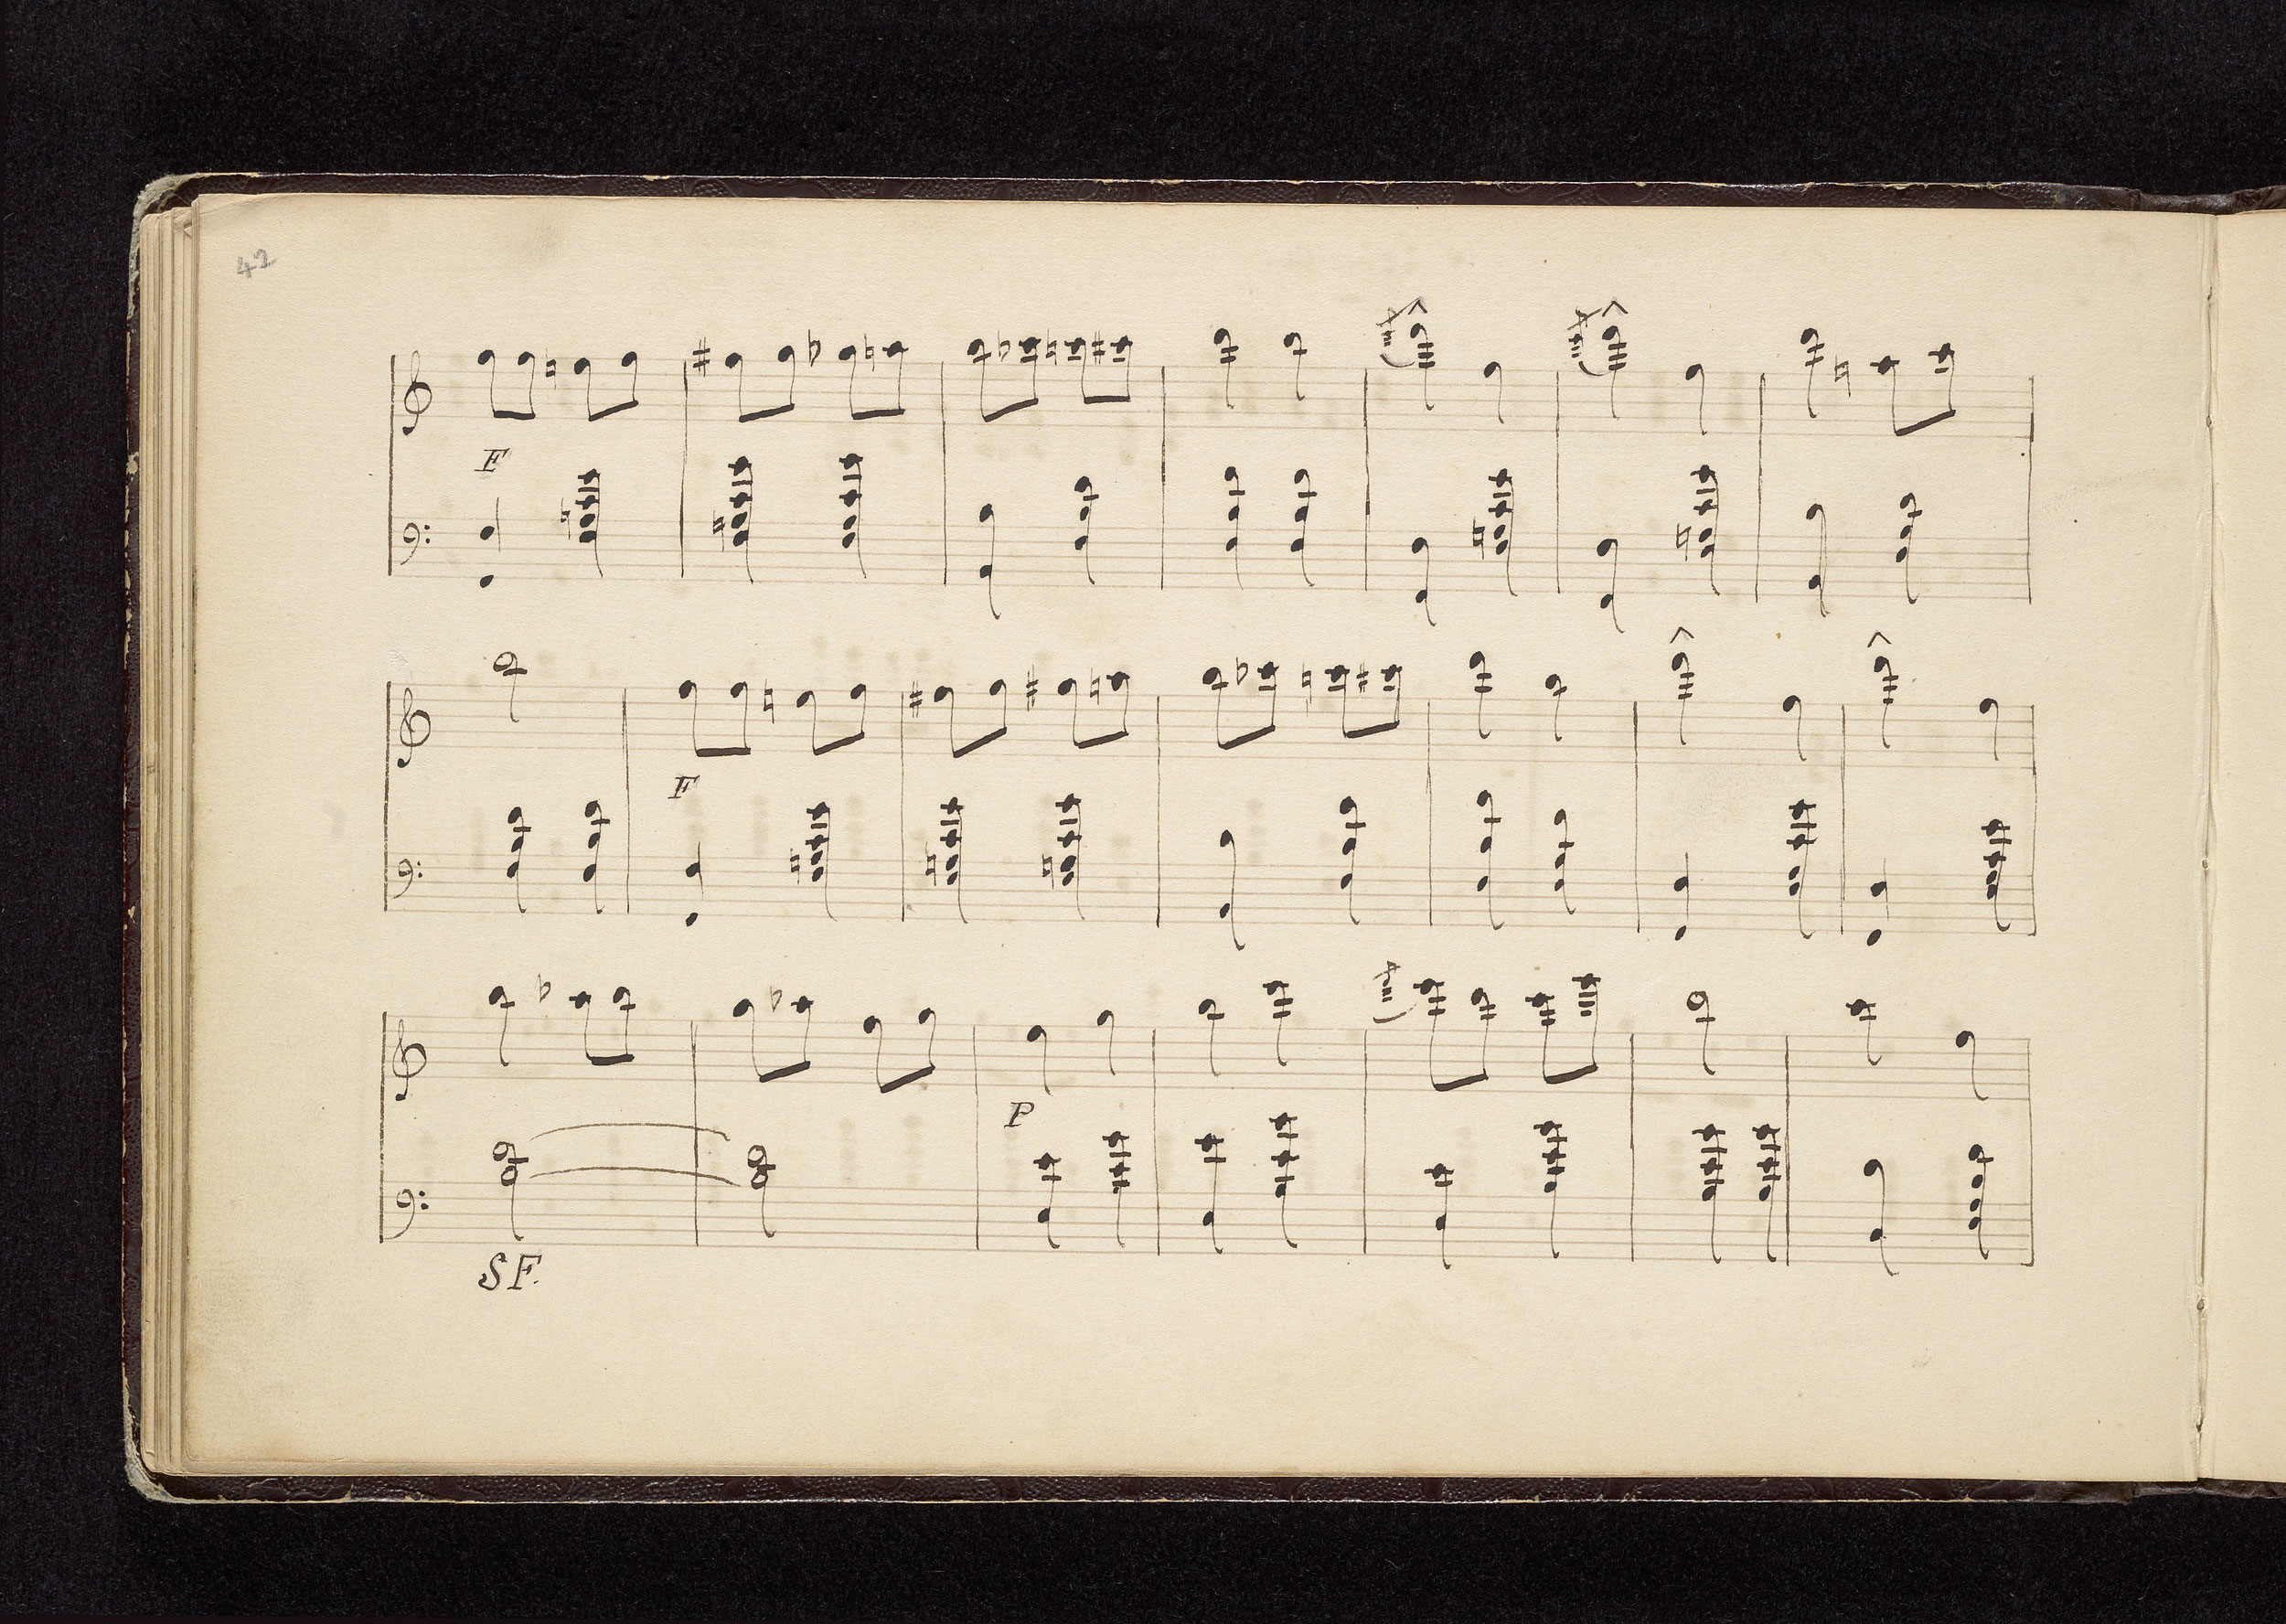 42
F
F
P
SF.